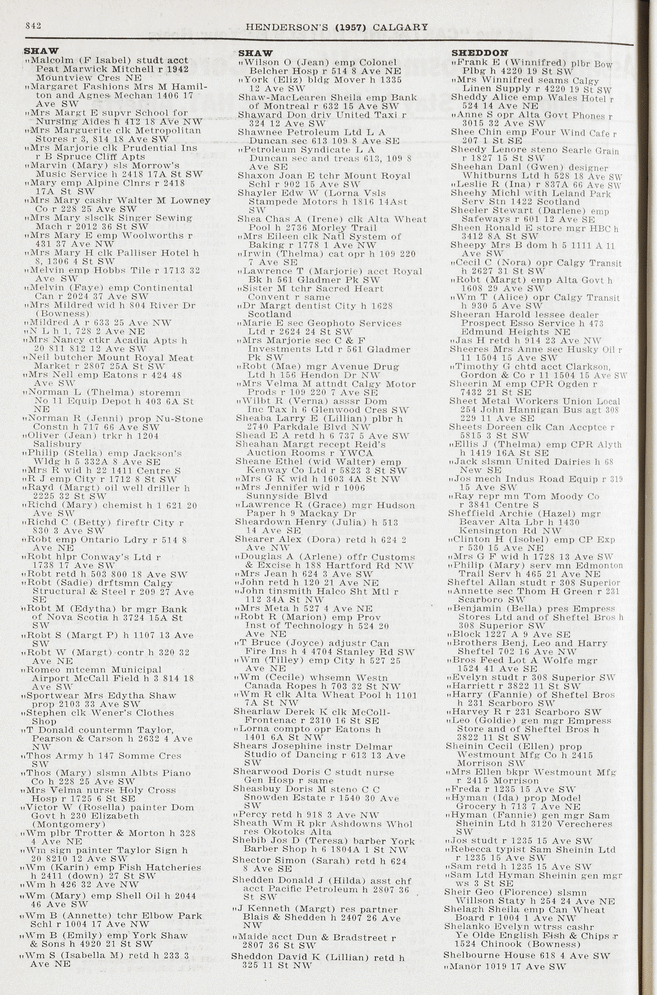 842
HENDERSON'S (1957) CALGARY
SHAW
„Malcolm (F Isabel) studt acct
Peat Marwick Mitchell r 1942
Mountview Cres NE
„Margaret Fashions Mrs M Hamil-
ton and Agnes Mechan 1406 17
Ave SW
„Mrs Margt E supvr School for
Nursing Aides h 412 18 Ave NW
„Mrs Marguerite clk Metropolitan
Stores r 3, 814 18 Ave SW
„Mrs Marjorie clk Prudential Ins
r B Spruce Cliff Apts
„Marvin (Mary) sls Morrow's
Music Service h 2418 17A St SW
„Mary emp Alpine Clnrs r 2418
17A St SW
„Mrs Mary cashr Walter M Lowney
Co r 228 25 Ave SW
„Mrs Mary slsclk Singer Sewing
Mach r 2012 36 St SW
„Mrs Mary E emp Woolworths r
431 37 Ave NW
„Mrs Mary H clk Palliser Hotel h
8, 1306 4 St SW
„Melvin emp Hobbs Tile r 1713 32
Ave SW
„Melvin (Faye) emp Continental
Can r 2024 37 Ave SW
„Mrs Mildred wid h 804 River Dr
(Bowness)
„Mildred A r 633 25 Ave NW
„N L h 1, 728 2 Ave NE
„Mrs Nancy ctkr Acadia Apts h
20 811 812 12 Ave SW
„Neil butcher Mount Royal Meat
Market r 2807 25A St SW
„Mrs Nell emp Eatons r 424 48
Ave SW
„Norman L (Thelma) storemn
No 11 Equip Depot h 403 6A St
NE
„Norman R (Jenni) prop Nu-Stone
Constn h 717 66 Ave SW
„Oliver (Jean) trkr h 1204
Salisbury
„Philip (Stella) emp Jackson's
Wldg h 5 332A 8 Ave SE
„Mrs R wid h 22 1411 Centre S
„R J emp City r 1712 8 St SW
„Rayd (Margt) oil well driller h
2225 32 St SW
„Richd (Mary) chemist h 1 621 20
Ave SW
„Richd C (Betty) fireftr City r
830 3 Ave SW
„Robt emp Ontario Ldry r 514 8
Ave NE
„Robt hlpr Conway's Ltd r
1738 17 Ave SW
„Robt retd h 503 800 18 Ave SW
„Robt (Sadie) drftsmn Calgy
Structural & Steel r 209 27 Ave
SE
„Robt M (Edytha) br mgr Bank
of Nova Scotia h 3724 15A St
SW
„Robt S (Margt P) h 1107 13 Ave
SW
„Robt W (Margt) contr h 320 32
Ave NE
„Romeo mtcemn Municipal
Airport McCall Field h 3 814 18
Ave SW
„Sportwear Mrs Edytha Shaw
prop 2103 33 Ave SW
„Stephen clk Wener's Clothes
Shop
„T Donald countermn Taylor,
Pearson & Carson h 2632 4 Ave
NW
„Thos Army h 147 Somme Cres
SW
„Thos (Mary) slsmn Albts Piano
Co h 228 25 Ave SW
„Mrs Velma nurse Holy Cross
Hosp r 1725 6 St SE
„Victor W (Rosella) painter Dom
Govt h 230 Elizabeth
(Montgomery)
„Wm plbr Trotter & Morton h 328
4 Ave NE
„Wm sign painter Taylor Sign h
20 8210 12 Ave SW
„Wm (Karin) emp Fish Hatcheries
h 2411 (down) 27 St SW
„Wm h 426 32 Ave NW
„Wm (Mary) emp Shell Oil h 2044
46 Ave SW
„Wm B (Annette) tchr Elbow Park
Schl r 1004 17 Ave NW
„Wm B (Emily) emp York Shaw
& Sons h 4920 21 St SW
„Wm S (Isabella M) retd h 233 3
Ave NE
SHAW
„Wilson O (Jean) emp Colonel
Belcher Hosp r 514 8 Ave NE
„York (Eliz) bldg Mover h 1335
12 Ave SW
Shaw-MacLearen Sheila emp Bank
of Montreal r 632 15 Ave SW
Shaward Don driv United Taxi r
324 12 Ave SW
Shawnee Petroleum Ltd L A
Duncan sec 613 109 8 Ave SE
„Petroleum Syndicate L A
Duncan sec and treas 613, 109 8
Ave SE
Shaxon Joan E tchr Mount Royal
Schl r 902 15 Ave SW
Shayler Edw W (Lorna Vsls
Stampede Motors h 1816 14Ast
SW
Shea Chas A (Irene) clk Alta Wheat
Pool h 2736 Morley Trail
„Mrs Eileen clk Natl System of
Baking r 1778 1 Ave NW
„Irwin (Thelma) cat opr h 109 220
7 Ave SE
„Lawrence T (Marjorie) acct Royal
Bk h 561 Gladmer Pk SW
„Sister M tchr Sacred Heart
Convent r same
„Dr Margt dentist City h 1628
Scotland
„Marie E sec Geophoto Services
Ltd r 2624 24 St SW
„Mrs Marjorie sec C & F
Investments Ltd r 561 Gladmer
Pk SW
„Robt (Mae) mgr Avenue Drug
Ltd h 156 Hendon Dr NW
„Mrs Velma M attndt Calgy Motor
Prods r 109 220 7 Ave SE
„Wilbt R (Verna) asssr Dom
Inc Tax h 6 Glenwood Cres SW
Sheaba Larry E (Lillian) plbr h
2740 Parkdale Blvd NW
Shead E A retd h 6 737 5 Ave SW
Sheahan Margt recept Reid's
Auction Rooms r YWCA
Sheane Ethel (wid Walter) emp
Kenway Co Ltd r 5823 3 St SW
„Mrs G K wid h 1603 4A St NW
„Mrs Jennifer wid r 1006
Sunnyside Blvd
„Lawrence R (Grace) mgr Hudson
Paper h 9 Mackay Dr
Sheardown Henry (Julia) h 513
14 Ave SE
Shearer Alex (Dora) retd h 624 2
Ave NW
„Douglas A (Arlene) offr Customs
& Excise h 188 Hartford Rd NW
„Mrs Jean h 624 3 Ave SW
„John retd h 120 21 Ave NE
„John tinsmith Halco Sht Mtl r
112 34A St NW
„Mrs Meta h 527 4 Ave NE
„Robt R (Marion) emp Prov
Inst of Technology h 524 20
Ave NE
„T Bruce (Joyce) adjustr Can
Fire Ins h 4 4704 Stanley Rd SW
„Wm (Tilley) emp City h 527 25
Ave NE
„Wm (Cecile) whsemn Westn
Canada Ropes h 703 32 St NW
„Wm R clk Alta Wheat Pool h 1101
7A St NW
Shearlaw Derek K clk McColl-
Frontenac r 2310 16 St SE
„Lorna compto opr Eatons h
1401 6A St NW
Shears Josephine instr Delmar
Studio of Dancing r 613 13 Ave
SW
Shearwood Doris C studt nurse
Gen Hosp r same
Sheasbuy Doris M steno C C
Snowden Estate r 1540 30 Ave
SW
„Percy retd h 918 3 Ave NW
Sheath Wm R pkr Ashdowns Whol
res Okotoks Alta
Shebib Jos D (Teresa) barber York
Barber Shop h 6 1804A 1 St NW
Shector Simon (Sarah) retd h 624
8 Ave SE
Shedden Donald J (Hilda) asst chf
acct Pacific Petroleum h 2807 36
St SW
„J Kenneth (Margt) res partner
Blais & Shedden h 2407 26 Ave
NW
„Maide acct Dun & Bradstreet r
2807 36 St SW
Sheddon David K (Lillian) retd h
325 11 St NW
SHEDDON
„Frank E (Winnifred) plbr Bow
Plbg h 4220 19 St SW
„Mrs Winnifred seams Calgy
Linen Supply r 4220 19 St SW
Sheddy Alice emp Wales Hotel r
524 14 Ave NE
„Anne S opr Alta Govt Phones r
3015 32 Ave SW
Shee Chin emp Four Wind Cafe r
207 1 St SE
Sheedy Lenore steno Searle Grain
r 1827 15 St SW
Sheehan Danl (Gwen) designer
Whitburns Ltd h 528 18 Ave SW
„Leslie R (Ina) r 837A 66 Ave SW
Sheehy Michl with Leland Park
Serv Stn 1422 Scotland
Sheeler Stewart (Darlene) emp
Safeways r 601 12 Ave SE
Sheen Ronald E store mgr HBC h
3412 8A St SW
Sheepy Mrs B dom h 5 1111 A 11
Ave SW
„Cecil C (Nora) opr Calgy Transit
h 2627 31 St SW
„Robt (Margt) emp Alta Govt h
1608 29 Ave SW
„Wm T (Alice) opr Calgy Transit
h 930 5 Ave SW
Sheeran Harold lessee dealer
Prospect Esso Service h 473
Edmund Heights NE
„Jas H retd h 914 23 Ave NW
Sheeres Mrs Anne sec Husky Oil r
11 1504 15 Ave SW
„Timothy G chtd acct Clarkson,
Gordon & Co r 11 1504 15 Ave SW
Sheerin M emp CPR Ogden r
7432 21 St SE
Sheet Metal Workers Union Local
254 John Hannigan Bus agt 308
229 11 Ave SE
Sheets Doreen clk Can Accptce r
5815 3 St SW
„Ellis J (Thelma) emp CPR Alyth
h 1419 16A St SE
„Jack slsmn United Dairies h 68
New SE
„Jos mech Indus Road Equip r 319
15 Ave SW
„Ray repr mn Tom Moody Co
r 3841 Centre S
Sheffield Archie (Hazel) mgr
Beaver Alta Lbr h 1430
Kensington Rd NW
„Clinton H (Isobel) emp CP Exp
r 530 15 Ave NE
„Mrs G F wid h 1728 13 Ave SW
„Philip (Mary) serv mn Edmonton
Trail Serv h 465 21 Ave NE
Sheftel Allan studt r 308 Superior
„Annette sec Thom H Green r 231
Scarboro SW
„Benjamin (Bella) pres Empress
Stores Ltd and of Sheftel Bros h
308 Superior SW
„Block 1227 A 9 Ave SE
„Brothers Benj, Leo and Harry
Sheftel 702 16 Ave NW
„Bros Feed Lot A Wolfe mgr
1524 41 Ave SE
„Evelyn studt r 308 Superior SW
„Harriett r 3822 11 St SW
„Harry (Fannie) of Sheftel Bros
h 231 Scarboro SW
„Harvey R r 231 Scarboro SW
„Leo (Goldie) gen mgr Empress
Store and of Sheftel Bros h
3822 11 St SW
Sheinin Cecil (Ellen) prop
Westmount Mfg Co h 2415
Morrison SW
„Mrs Ellen bkpr Westmount Mfg
r 2415 Morrison
„Freda r 1235 15 Ave SW
„Hyman (Ida) prop Model
Grocery h 713 7 Ave NE
„Hyman (Fannie) gen mgr Sam
Sheinin Ltd h 3120 Vercheres
SW
„Jos studt r 1235 15 Ave SW
„Rebecca typist Sam Sheinin Ltd
r 1235 15 Ave SW
„Sam retd h 1235 15 Ave SW
„Sam Ltd Hyman Sheinin gen mgr
ws 3 St SE
Sheir Geo (Florence) slsmn
Willson Staty h 254 24 Ave NE
Shelagh Sheila emp Can Wheat
Board r 1004 1 Ave NW
Shelanko Evelyn wtrss cashr
Ye Olde English Fish & Chips r
1524 Chinook (Bowness)
Shelbourne House 618 4 Ave SW
„Manor 1019 17 Ave SW